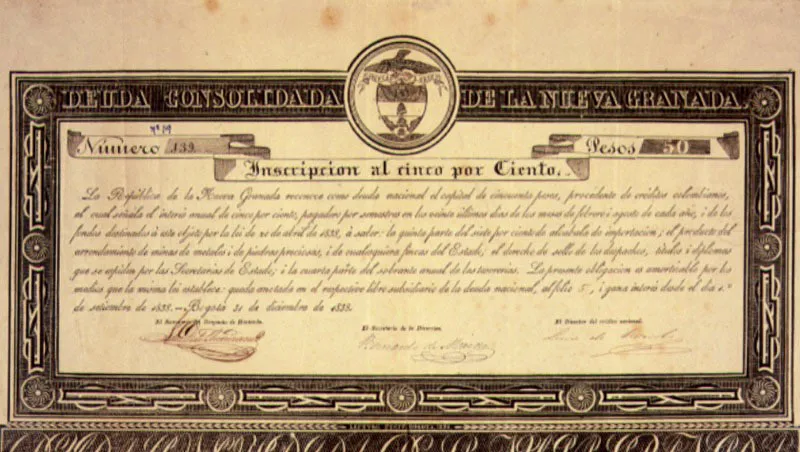 DEUDA CONSOLIDADA DE LA NUEVA GRANADA.
Nº 19
Número 139. Pesos 50
Inscripcion al cinco por Ciento.
La República de la Nueva Granada reconoce como deuda nacional el capital de cincuenta pesos, procedente de créditos colombianos,
al cual señala el interes anual de cinco por ciento, pagadero por semestres en los veinte últimos dias de los meses de febrero i agosto de cada año, i de los
fondos destinados a este objeto por la lei de 20 de abril de 1838, á saber: la quinta parte del siete por ciento de alcabala de importacion; el producto del
arrendamiento de minas de metales i de piedras preciosas, i de cualesquiera fincas del Estado; el derecho de sello de los despachos, titulos i diplomas
que se expiden por las Secretarías de Estado; i la cuarta parte del sobrante anual de las tesorerías. La presente obligacion es amortizable por los
medios que la misma lei establece: queda anotada en el respectivo libro subsidiario de la deuda nacional, al folio 5, i gana interes desde el dia 1.º
de setiembre de 1838. — Bogotá 31 de diciembre de 1838.
El Secretario del Despacho de Hacienda. El Secretario de la Direccion. El Director del crédito nacional.
Bernardo de